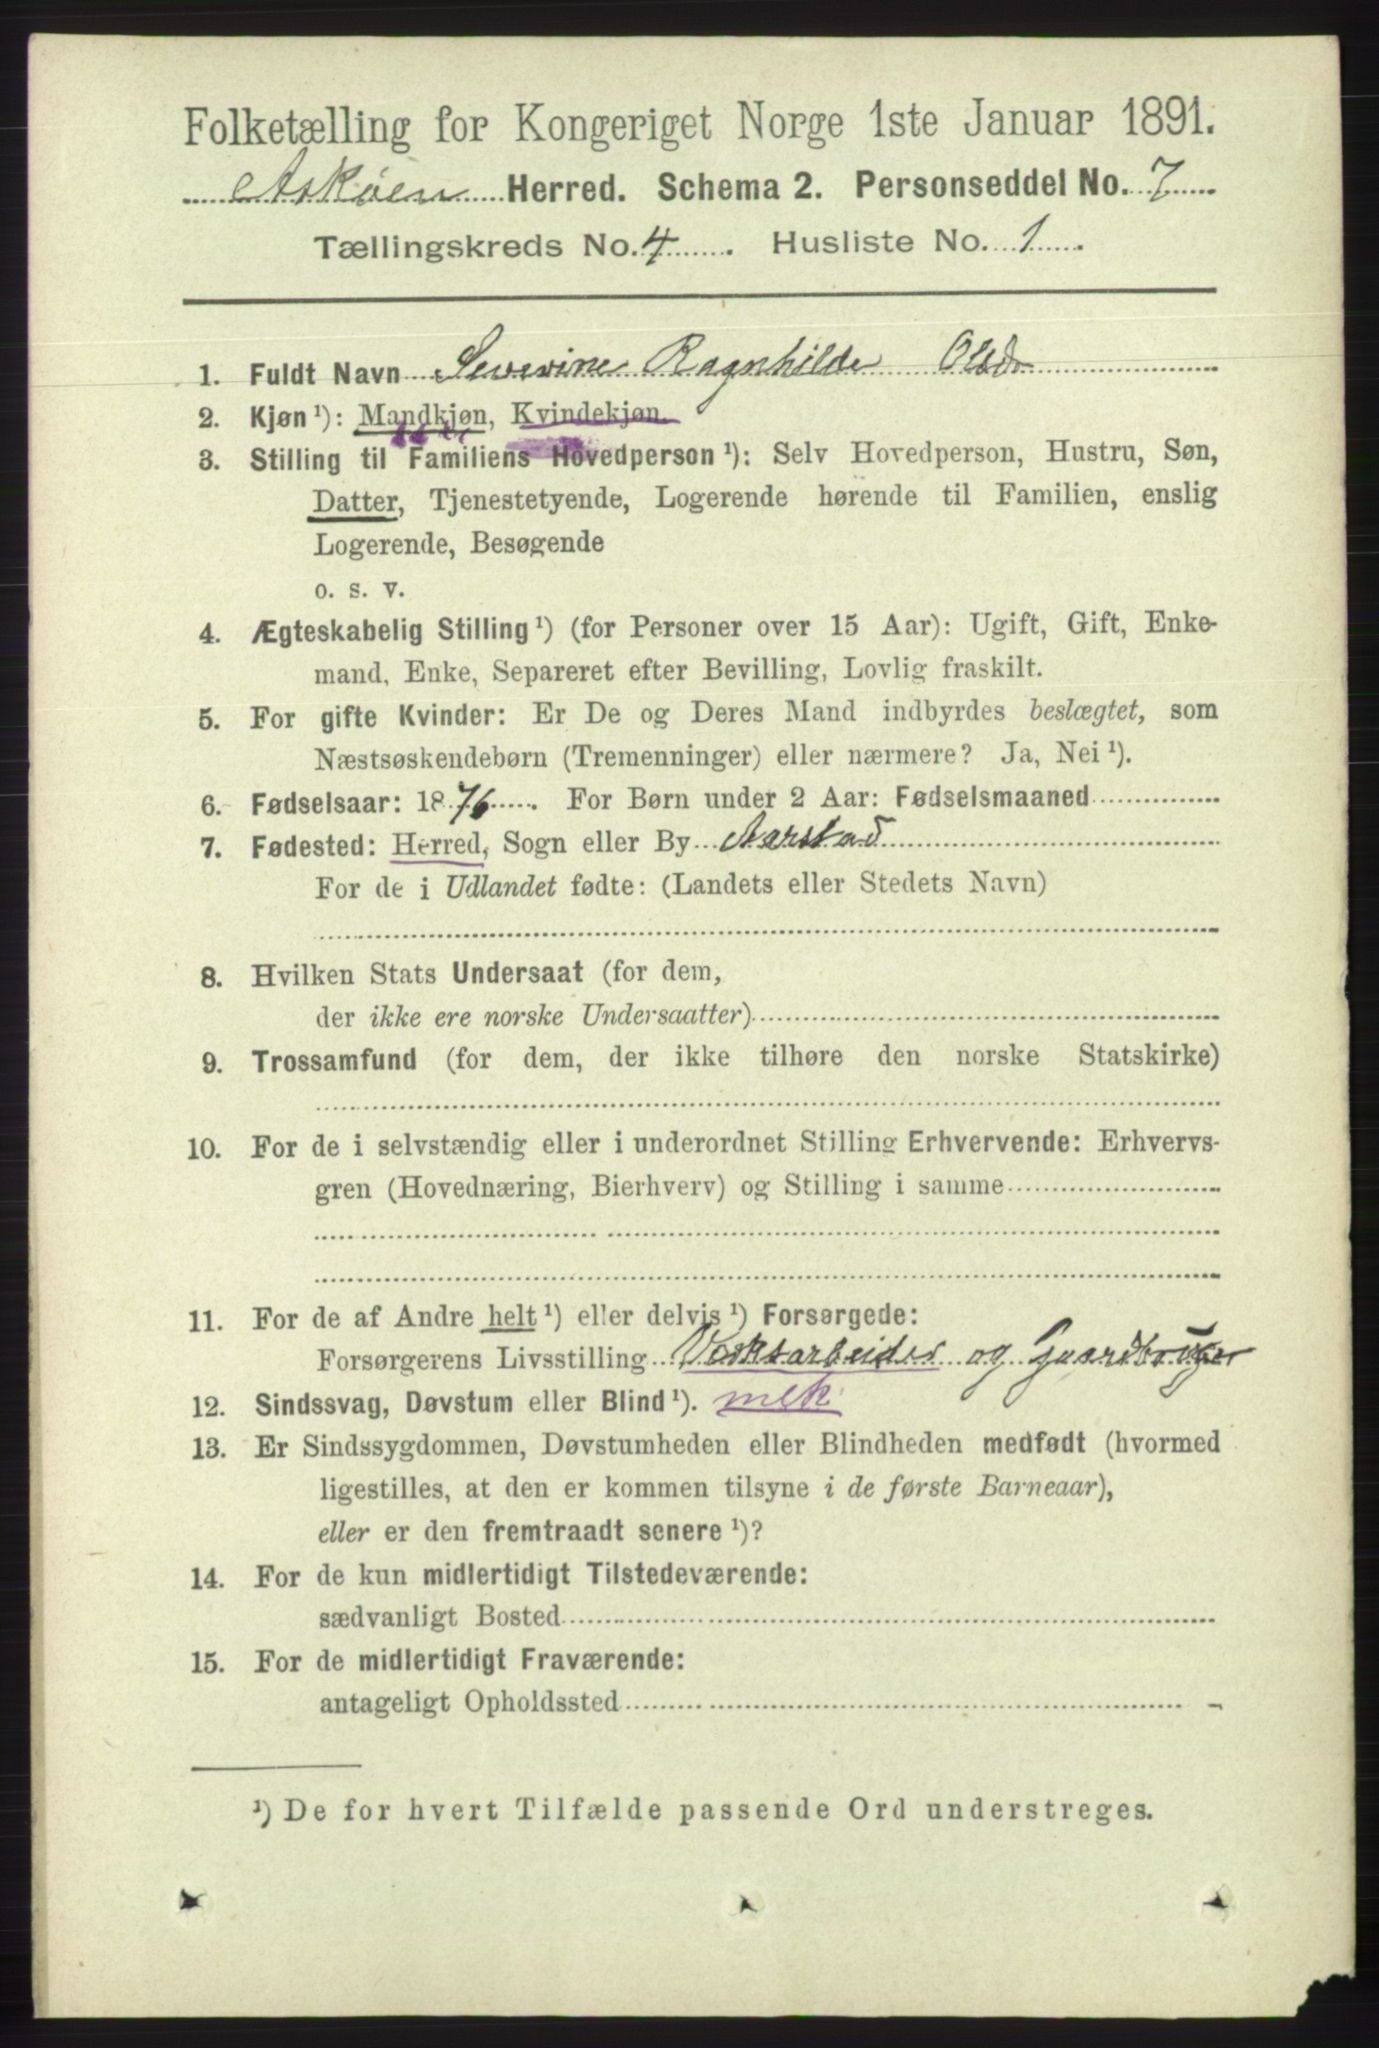 Folketælling for Kongeriget Norge 1ste Januar 1891.
Askøen Herred. Schema 2. Personseddel No. 7
Tællingskreds No. 4. Husliste No. 1.
1. Fuldt Navn Severine Ragnhilde Olsdr
2. Kjøn ¹): Mandkjøn, Kvindekjøn.
3. Stilling til Familiens Hovedperson ¹): Selv Hovedperson, Hustru, Søn,
Datter, Tjenestetyende, Logerende hørende til Familien, enslig
Logerende, Besøgende
o. s. v.
4. Ægteskabelig Stilling ¹) (for Personer over 15 Aar): Ugift, Gift, Enke-
mand, Enke, Separeret efter Bevilling, Lovlig fraskilt.
5. For gifte Kvinder: Er De og Deres Mand indbyrdes beslægtet, som
Næstsøskendebørn (Tremenninger) eller nærmere? Ja, Nei ¹).
6. Fødselsaar: 1876. For Børn under 2 Aar: Fødselsmaaned
7. Fødested: Herred, Sogn eller By Aarstad
For de i Udlandet fødte: (Landets eller Stedets Navn)
8. Hvilken Stats Undersaat (for dem,
der ikke ere norske Undersaatter)
9. Trossamfund (for dem, der ikke tilhøre den norske Statskirke)
10. For de i selvstændig eller i underordnet Stilling Erhvervende: Erhvervs-
gren (Hovednæring, Bierhverv) og Stilling i samme
11. For de af Andre helt ¹) eller delvis ¹) Forsørgede:
Forsørgerens Livsstilling Værksarbeider og Gaardbruger
12. Sindssvag, Døvstum eller Blind ¹). mek
13. Er Sindssygdommen, Døvstumheden eller Blindheden medfødt (hvormed
ligestilles, at den er kommen tilsyne i de første Barneaar),
eller er den fremtraadt senere ¹)?
14. For de kun midlertidigt Tilstedeværende:
sædvanligt Bosted
15. For de midlertidigt Fraværende:
antageligt Opholdssted
¹) De for hvert Tilfælde passende Ord understreges.